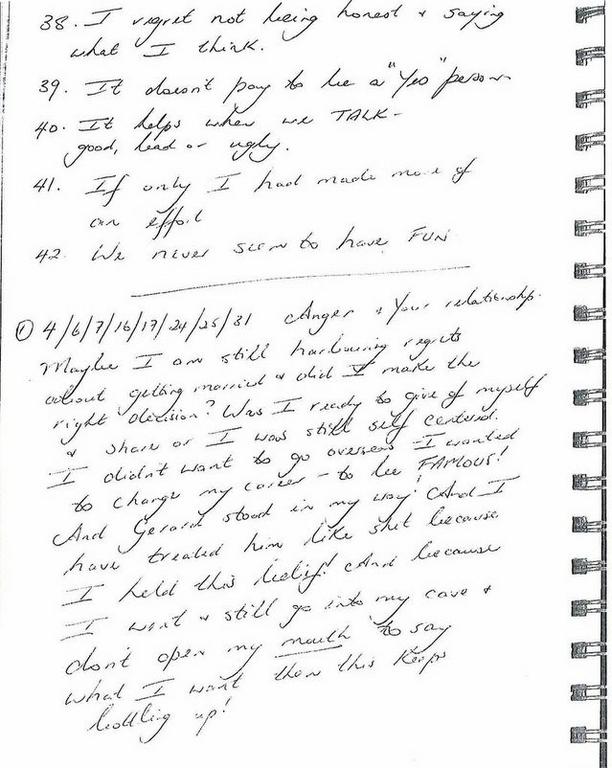 38. I regret not being honest & saying
what I think.
39. It doesn't pay to be a "Yes" person
40. It helps when we TALK -
good, bad or ugly.
41. If only I had made more of
an effort
42. We never seem to have FUN
① 4/6/7/16/17/24/25/31 Anger & Your relationship.
Maybe I am still harbouring regrets
about getting married & did I make the
right decision? Was I ready to give of myself
& share or I was still self centered.
I didn't want to go overseas - I wanted
to change my career - to be FAMOUS!
And Gerard stood in my way! And I
have treated him like shit because
I held this belief! And because
I went & still go into my cave &
don't open my mouth to say
what I want then this keeps
bottling up!